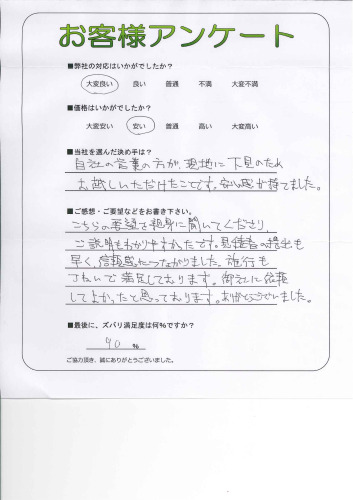 お客様アンケート
■弊社の対応はいかがでしたか?
大変良い 良い 普通 不満 大変不満
■価格はいかがでしたか?
大変安い 安い 普通 高い 大変高い
■当社を選んだ決め手は?
自社の営業の方が、現地に下見のため
お越しいただけたことです。安心感が持てました。
■ご感想・ご要望などをお書き下さい。
こちらの要望を親身に聞いてくださり、
ご説明もわかりやすかったです。見積書の提出も
早く、信頼感につながりました。施行も
ていねいで満足しております。御社に依頼
してよかったと思っております。ありがとうございました。
■最後に、ズバリ満足度は何%ですか?
90 %
ご協力頂き、誠にありがとうございました。